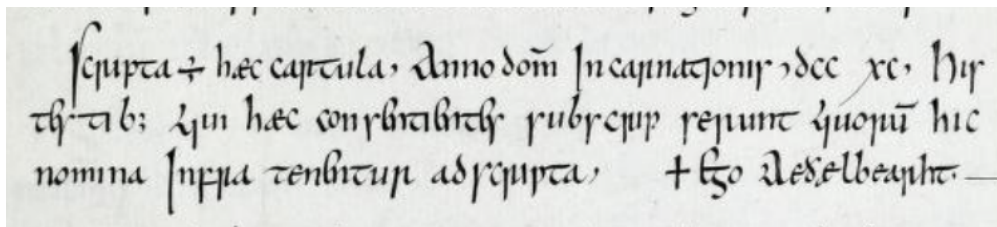 scripta ÷ haec cartula, Anno dom̄ Incarnationis, dcc xc, His
testib; qui haec consentientes subscrip serunt quorū hic
nomina Infra tenentur adscripta, + Ego Aeðelbearht